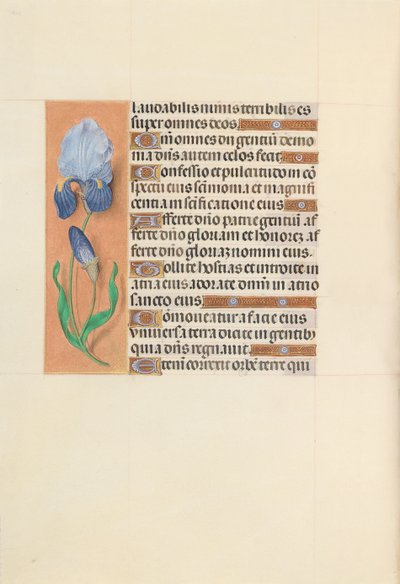 laudabilis nimis terribilis es
super omnes deos.
Qm̄ omnes dii gentiū demo
nia dn̄s autem celos fecit.
Confessio et pulcritudo in cō
spectu eius sc̄imonia et magnifi
centia in sc̄ificatione eius
Afferte dn̄o patrie gentiū af
ferte dn̄o gloriam et honorez af
ferte dn̄o gloriaz nomini eius.
Tollite hostias et introite in
atria eius adorate dnm̄ in atrio
sancto eius.
Cōmoueatur a facie eius
vniuersa terra dicite in gentibꝫ
quia dn̄s regnauit.
Etenī correxit orbē terre qui